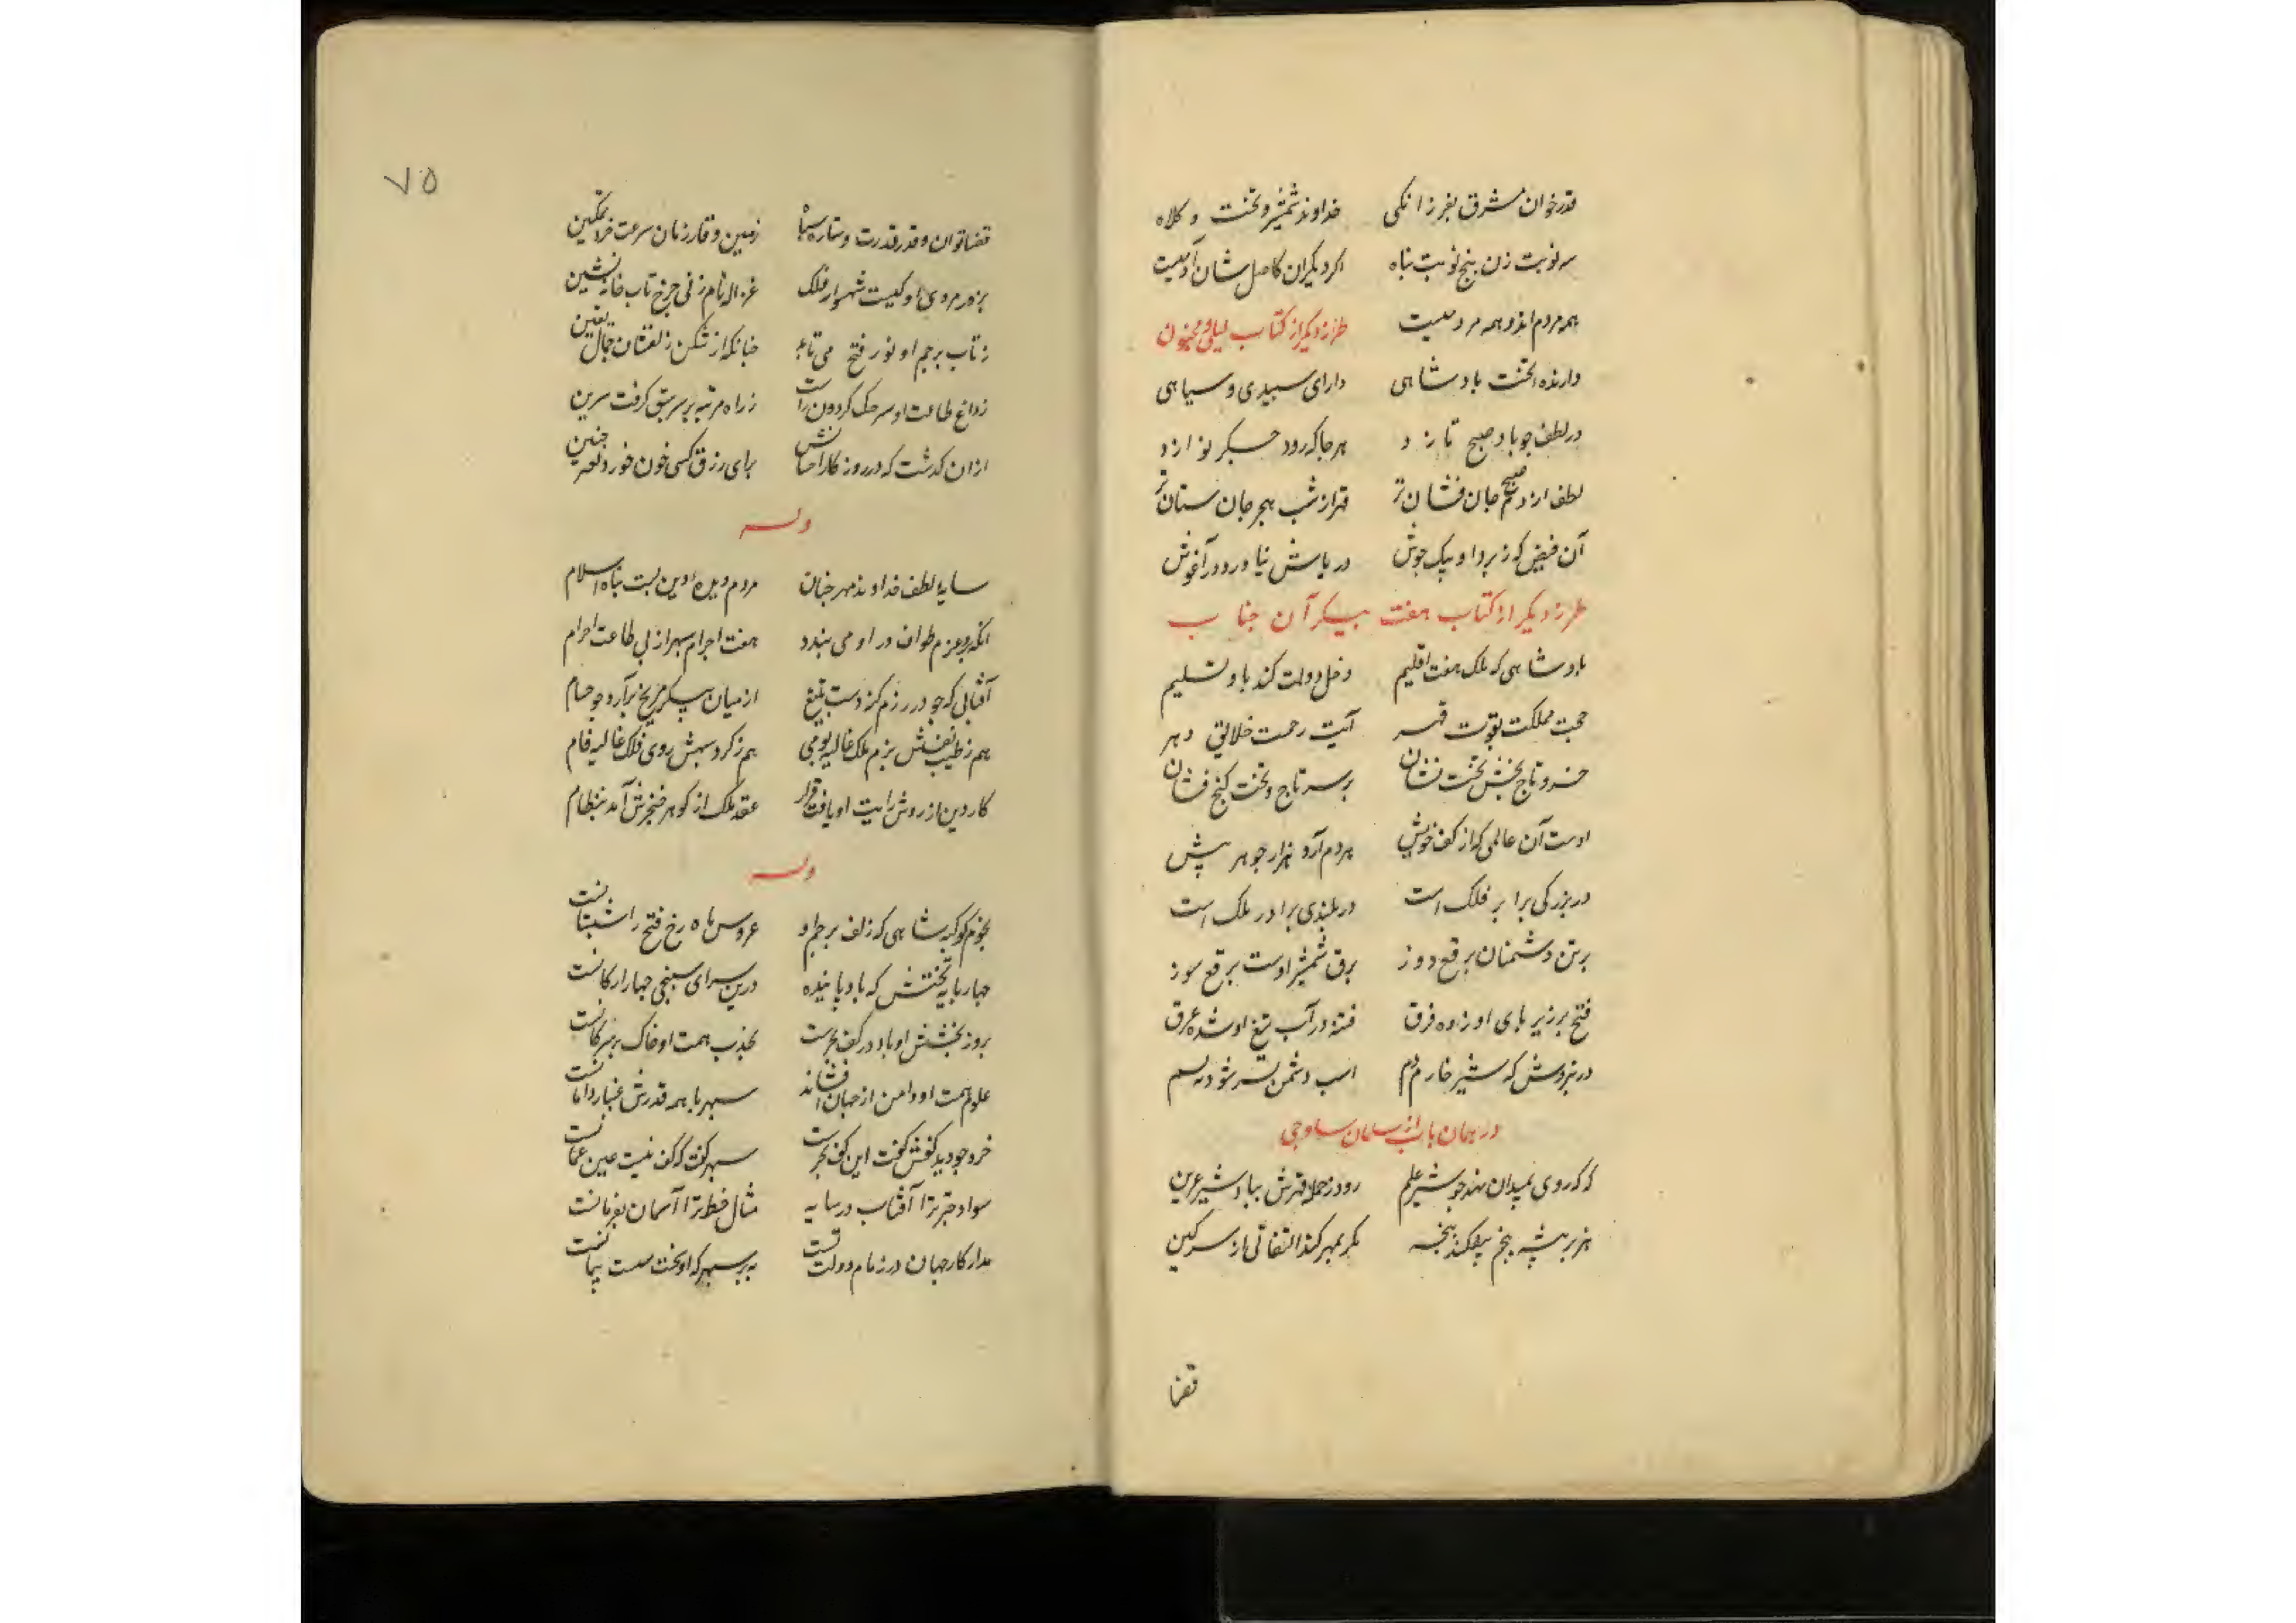 قدرخوان مشرق بفرزانکی خداوند شمشیر و تخت و کلاه
سه نوبت زن پنج نوبت پناه اگر دیگران کاصل شان آدمیست
همه مردم اند و همه مردمیست طرز دیگر از کتاب لیلی و مجنون
دارنده تخت پادشاهی دارای سپیدی و سیاهی
در لطف چو باد صبح تازد هر جا که رود جگر نوازد
لطف از دم صبح جان فشان تر قهر از شب هجر جان ستان تر
آن فیض که زبرد او بیک جوش دریاش نیاورد در آغوش
طرز دیگر از کتاب هفت پیکر آن جناب
پادشاهی که ملک هفت اقلیم دخل دولت کند باو تسلیم
حجت مملکت بقوت قهر آیت رحمت خلایق دهر
خسرو تاج بخش تخت نشان بر سر تاج و تخت گنج فشان
اوست آن عالمی که از کف خویش هر دم آرد هزار جوهر پیش
در بزرگی برابر فلک است در بلندی برادر ملک است
بر تن دشمنان برقع دوز برق شمشیر اوست برقع سوز
فتح بر زیر پای او زده فرق فتنه در آب تیغ او شده غرق
در نبردش که شیر خارد دم اسب دشمن بسر شود نه بسم
در همان باب از سلمان ساوجی
که روی بمیدان نهد چو شیر علم رود ز حمله قهرش بباد شیر عرین
هزبر بیشه پنجم بیفکند پنجه مگر بمهر کند التفاتی از سر کین
قضا
۷۵
قضا توان و قدر قدرت و ستاره سپاه زمین وقار زمان سرعت فرد تمکین
بزور مردی او کیست شهسوار فلک غزاله نام زنی چرخ تاب خانه نشین
ز تاب پرچم او نور فتح می تابد چنانکه از شکن زلفشان جمال یقین
ز داغ طاعت او سرحک گردون راست ز راه مرتبه بر سر سبق گرفت سرین
ازان گذشت که در روزگار احسانش برای رزق کسی خون خورد بغیر جنین
وله
سایه لطف خداوند مهر جنان مردم دیده دین بست پناه اسلام
آنکه بر عزم طواف در او می بندد هفت اجرام سپهر از پی طاعت احرام
آفتابی که چو در رزم کند دست بتیغ از میان پیکر مریخ برآرد چو حسام
هم ز طیب نفسش بزم ملک غالیه بوی هم ز گرد سپهش روی فلک غالیه فام
کار دین از روش رایت او یافت قرار عقد ملک از گوهر خنجرش آمد بنظام
وله
نجوم کوکبه شاهی که زلف پرچم او عروس ماه رخ فتح را شبستانست
چهار پایه تختش که باد پاینده درین سرای سپنجی چهار ارکانست
بروز بخشش او باد در کف بحرست بجذب همت او خاک بر سر کانست
علو همت او دامن از جهان افشاند سپهر با همه قدرش غبار دامانست
خرد چو دید کفش گفت این کف بحرست سپهر گفت که کف نیست عین عمانست
سواد چتر ترا آفتاب در سایه مثال خط ترا آسمان بفرمانست
مدار کار جهان در زمام دولت تست نه بر سپهر که او سخت سست پیمانست